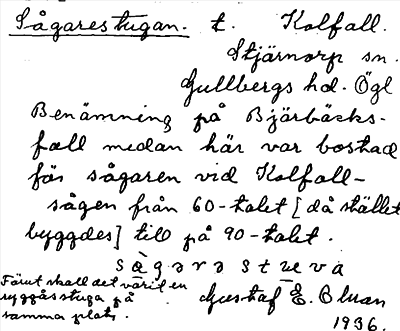 Sågarestugan. t. Kolfall.
Stjärnorp sn.
Gullbergs hd. Ögl
Benämning på Bjärbäcks-
fall medan här var bostad
för sågaren vid Kolfall-
sågen från 60-talet [då stället
byggdes] till på 90-talet.
sàgərəstʉva
Förut skall det varit en
ryggåsstuga på
samma plats.
Gustaf E. Bluan
1936.